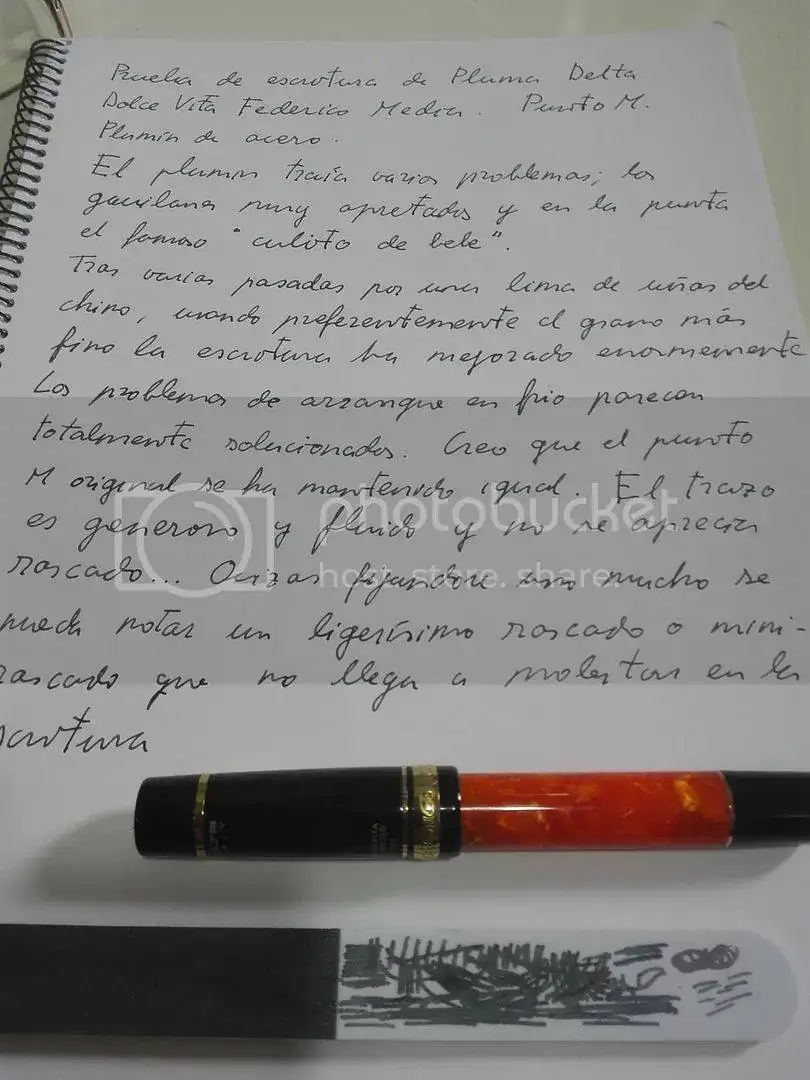 Prueba de escritura de Pluma Delta
Dolce Vita Federico Media. Punto M.
Plumin de acero.
El plumin traía varios problemas; los
gavilanes muy apretados y en la punta
el famoso "culito de bebe".
Tras varias pasadas por una lima de uñas del
chino, usando preferentemente el grano más
fino la escritura ha mejorado enormemente
Los problemas de arranque en frio parecen
totalmente solucionados. Creo que el punto
M original se ha mantenido igual. El trazo
es generoso y fluido y no se aprecia
rascado... Quizas fijandose uno mucho se
puede notar un ligerísimo rascado o mini-
rascado que no llega a molestar en la
scritura
photobucket
host. store. share.